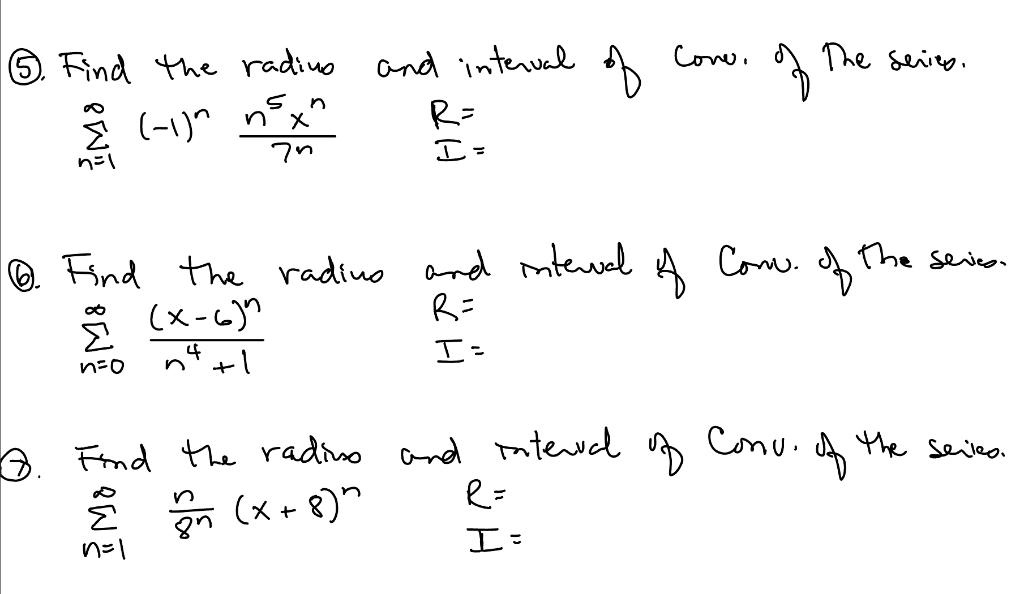 ⑤. Find the radius and interval of Conv. of The series.
∞ Σ n=1 (-1)ⁿ n⁵xⁿ / 7n R=
I =
⑥. Find the radius and interval of Conv. of The series.
∞ Σ n=0 (x-6)ⁿ / n⁴+1 R=
I =
⑦. Find the radius and interval of Conv. of the series.
∞ Σ n=1 n / 8n (x+8)ⁿ R=
I =